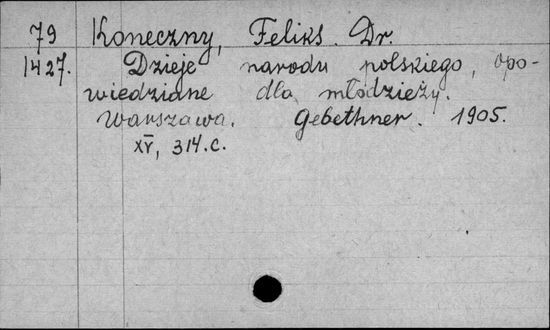 79 Koneczny, Feliks. Dr.
1427. Dzieje narodu polskiego, opo-
wiedziane dla młodzieży.
Warszawa. Gebethner. 1905.
XV, 314.c.